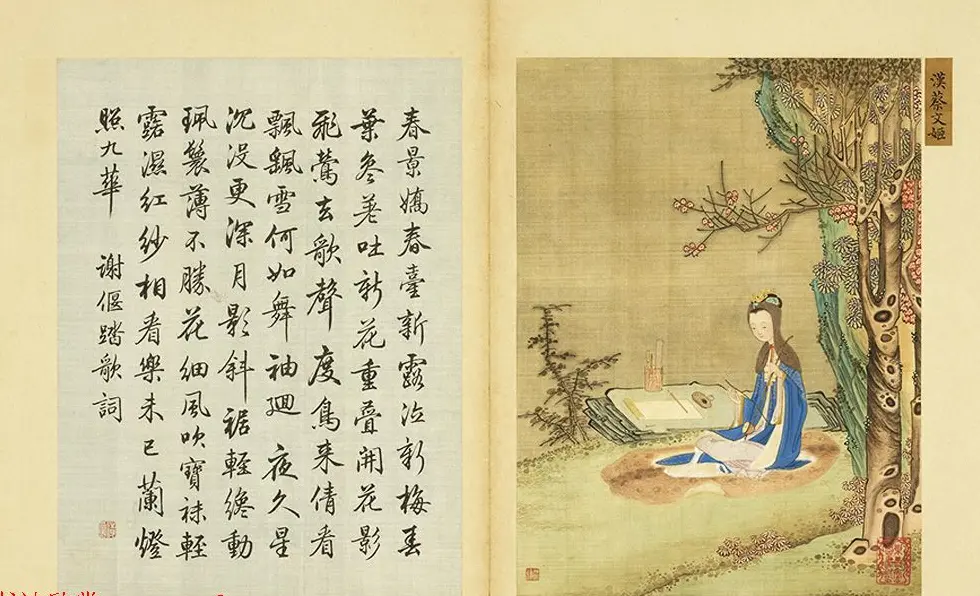 漢蔡文姬
春景嬌春臺新露泣新梅春
葉參差吐新花重疊開花影
飛鶯去歌聲度鳥來倩看
飄飄雪何如舞袖迴 夜久星
沉沒更深月影斜裾輕纔動
珮鬟薄不勝花細風吹寶袜輕
露濕紅紗相看樂未已蘭燈
照九華 謝偃踏歌詞